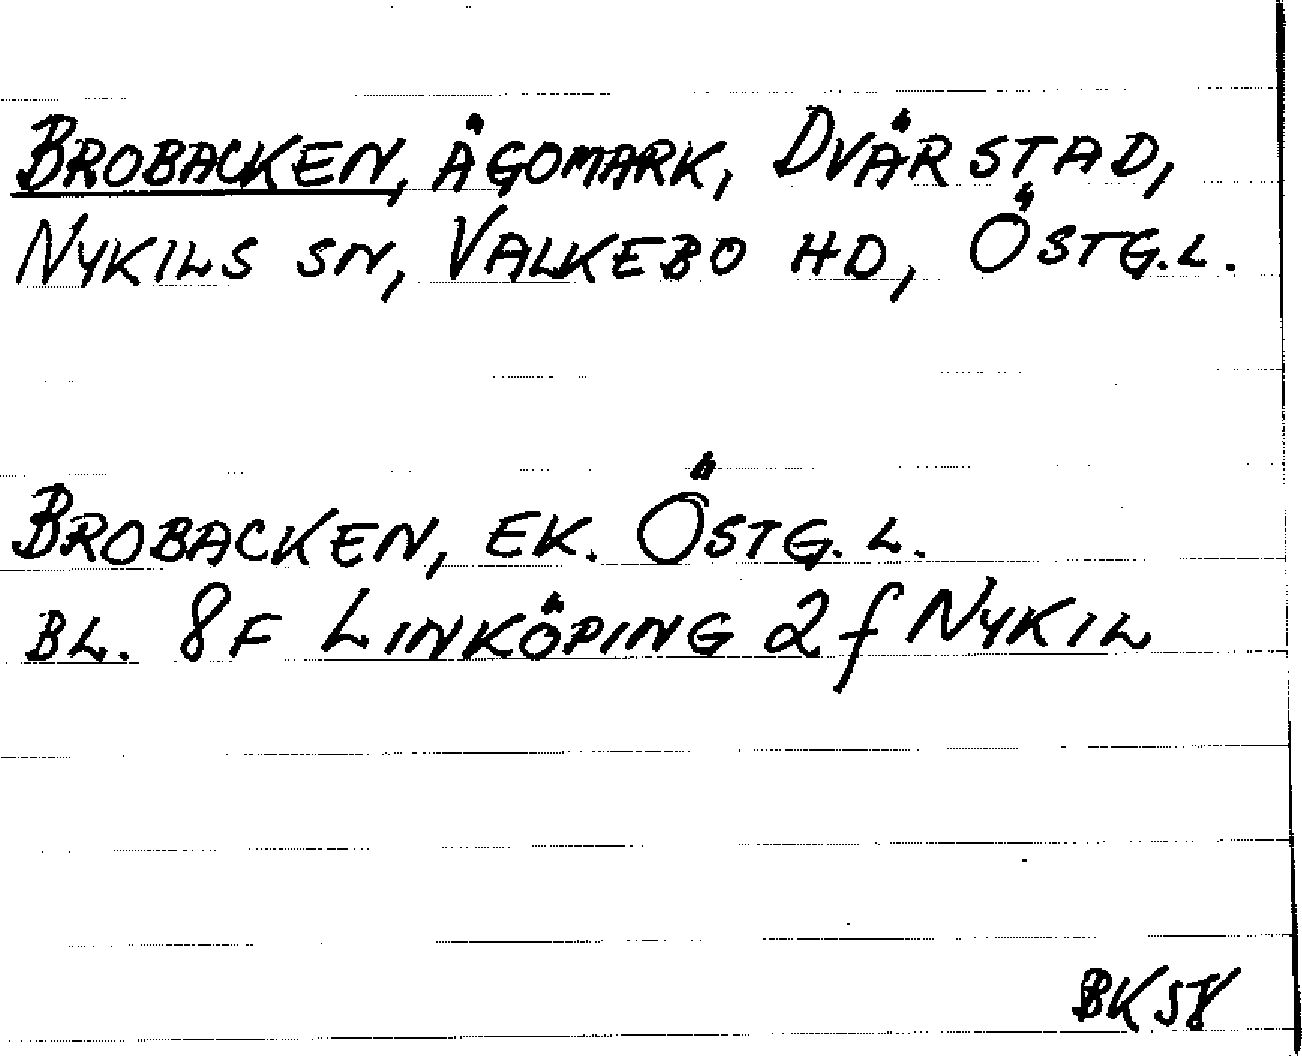 BROBACKEN, ÄGOMARK, DVÄRSTAD,
NYKILS SN, VALKEBO HD, ÖSTG.L.
BROBACKEN, EK. ÖSTG. L.
BL. 8F LINKÖPING 2f NYKIL
BK 58